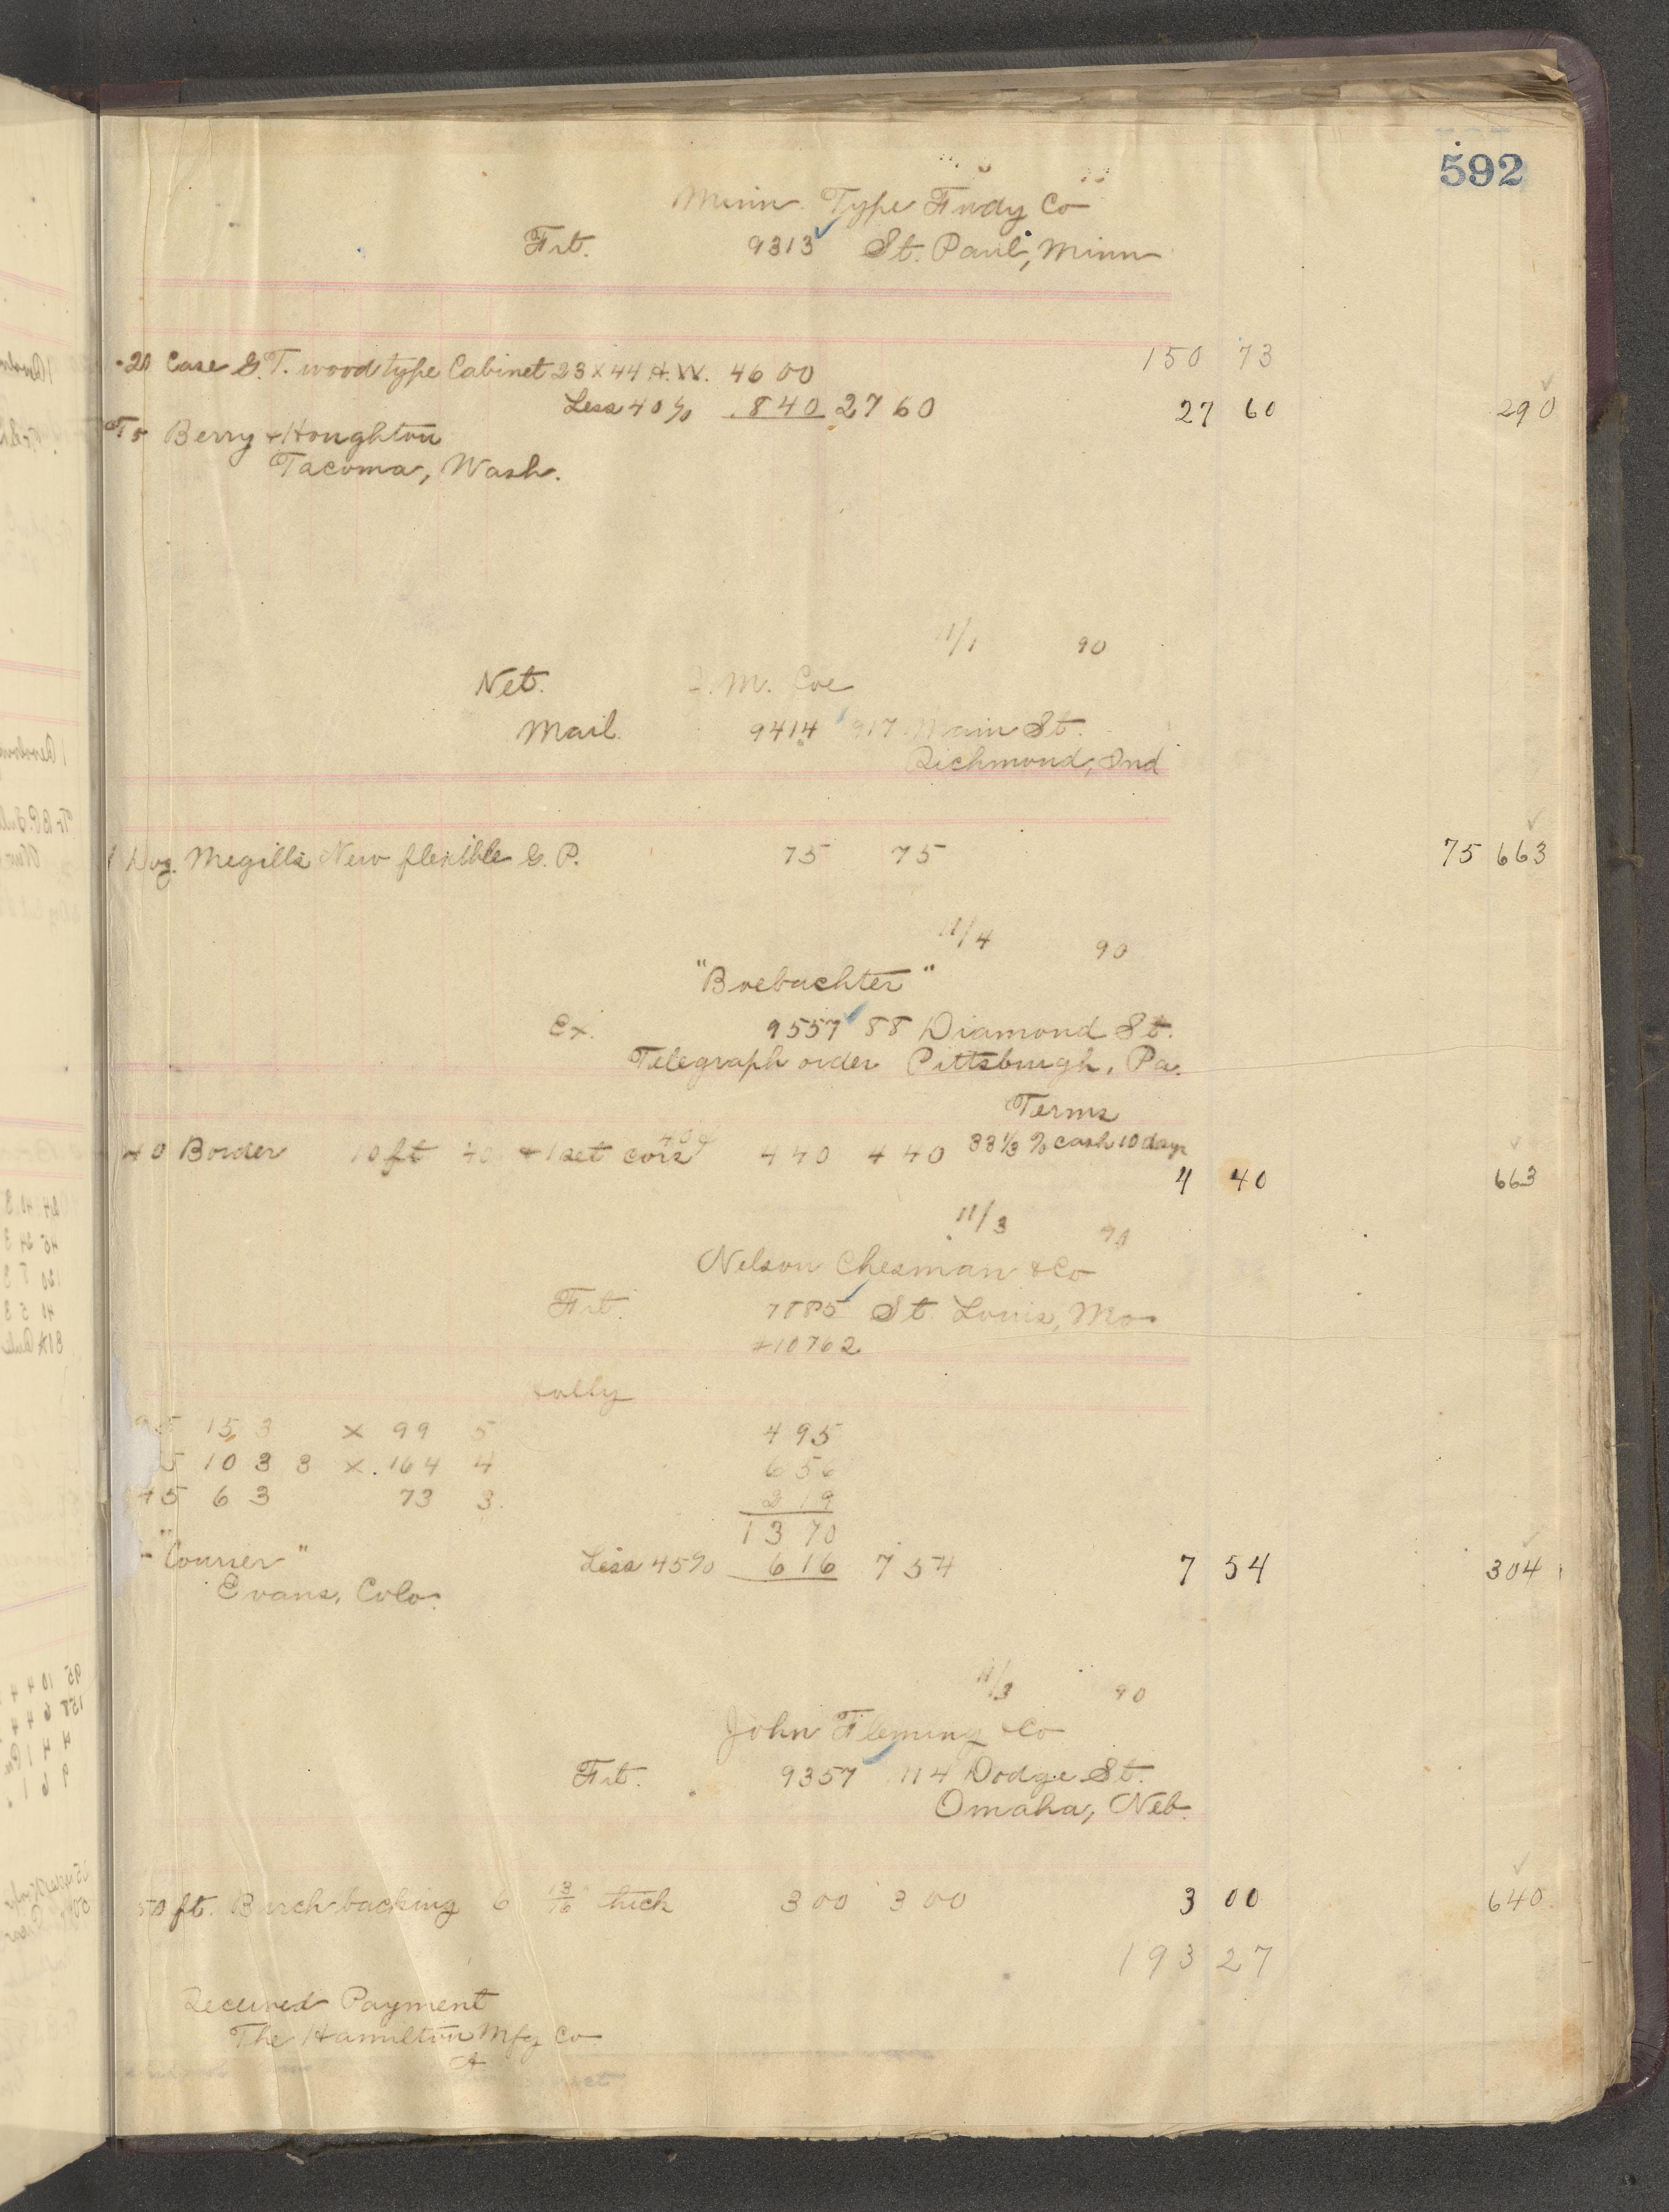 592
Minn. Type Fndy Co
Frt. 9313 St. Paul, Minn
150 73
20 Case G.T. wood type Cabinet 23 x 44 H.W. 46 00
Less 40% 8 40 27 60 27 60 290
To Berry & Houghton
Tacoma, Wash.
11/1 90
Net. M. Coe
Mail. 9414 917 Main St.
Richmond, Ind
1 Doz. Megills New flexible G. P. 75 75 75 663
11/4 90
"Boebachter"
Ex. 9557 88 Diamond St.
Telegraph order Pittsburgh, Pa.
Terms
40 Border 10 ft 40 + 1 set cors 40¢ 4 40 4 40 33 1/3 % cash 10 days
4 40 663
11/3 90
Nelson Chesman & Co
Frt. 7885 St Louis, Mo
+10762
15 3 x 99 5 4 95
10 3 3 x 164 4 6 56
45 6 3 73 3 2 19
13 70
"Courier" Less 45% 6 16 7 54 7 54 304
Evans, Colo.
11/3 90
John Fleming & Co
Frt. 9357 1114 Dodge St.
Omaha, Neb.
50 ft. Birch backing 6 13/16 thick 3 00 3 00 3 00 640
193 27
Received Payment
The Hamilton Mfg Co
A